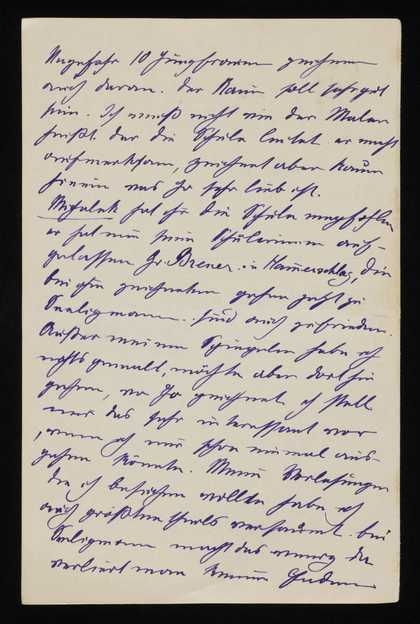 Ungefähr 10 Jungfrauen zeichnen
auch daran. Der Raum soll sehr gut
sein. Ich weiß nicht wie der Maler
heißt der die Schule leitet er macht
aufmerksam, zeichnet aber kaum
hinein was Ihr sehr lieb ist.
Michalek hat ihr die Schule empfohlen
er hat nun seine Schülerinnen auf-
gelassen Frl. Brener. in Hammerschlag, die
bei ihm zeichneten gehen jetzt zu
Seeligmann. sind auch zufrieden.
Außer meinen Spiegeln habe ich
nichts gemalt, möchte aber dorthin
gehen, wo Ihr zeichnet ich stelle
mir das sehr interessant vor
, wenn ich nur schon einmal aus-
gehen könnte. Meine Vorlesungen
die ich besuchen wollte habe ich
auch größtentheils versäumt. bei
Seeligmann macht das wenig da
verliert man keinen Faden